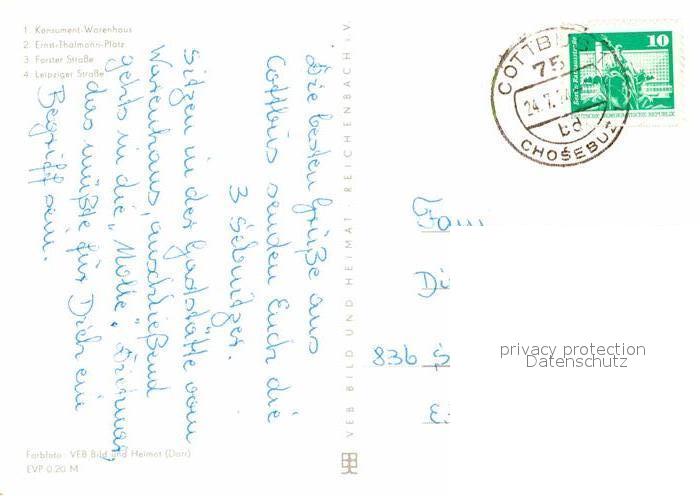 1. Konsument-Warenhaus
2. Ernst-Thälmann-Platz
3. Forster Straße
4. Leipziger Straße
Die besten Grüße aus
Cottbus senden Euch die
3 Sebnitzer.
Sitzen in der Gaststätte vom
Warenhaus, anschließend
gehts in die „Molle“,
das müßte für Dich ein
Begriff sein.
Farbfoto: VEB Bild und Heimat (Darr)
EVP 0,20 M
VEB BILD UND HEIMAT · REICHENBACH i.V.
COTTBUS
75
24. 7.
bd
CHOŚEBUZ
10
DEUTSCHE DEMOKRATISCHE REPUBLIK
Fam
Di
836 S
privacy protection
Datenschutz